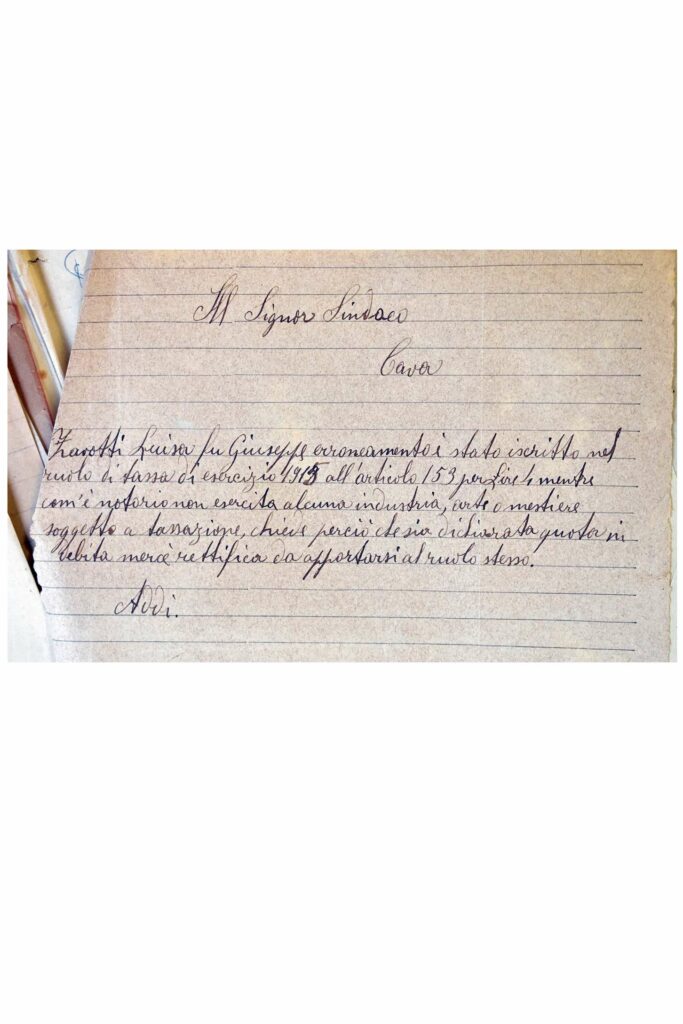 Al Signor Sindaco
Cava
Zarotti Luisa fu Giuseppe erroneamento è stato iscritto nel
ruolo di tassa di esercizio 1915 all'articolo 153 per Lire 4, mentre
com'è notorio non esercita alcuna industria, arte o mestiere
soggetto a tassazione, chiede perciò che sia dichiarata quota in
debita mercè rettifica da apportarsi al ruolo stesso.
Addì.